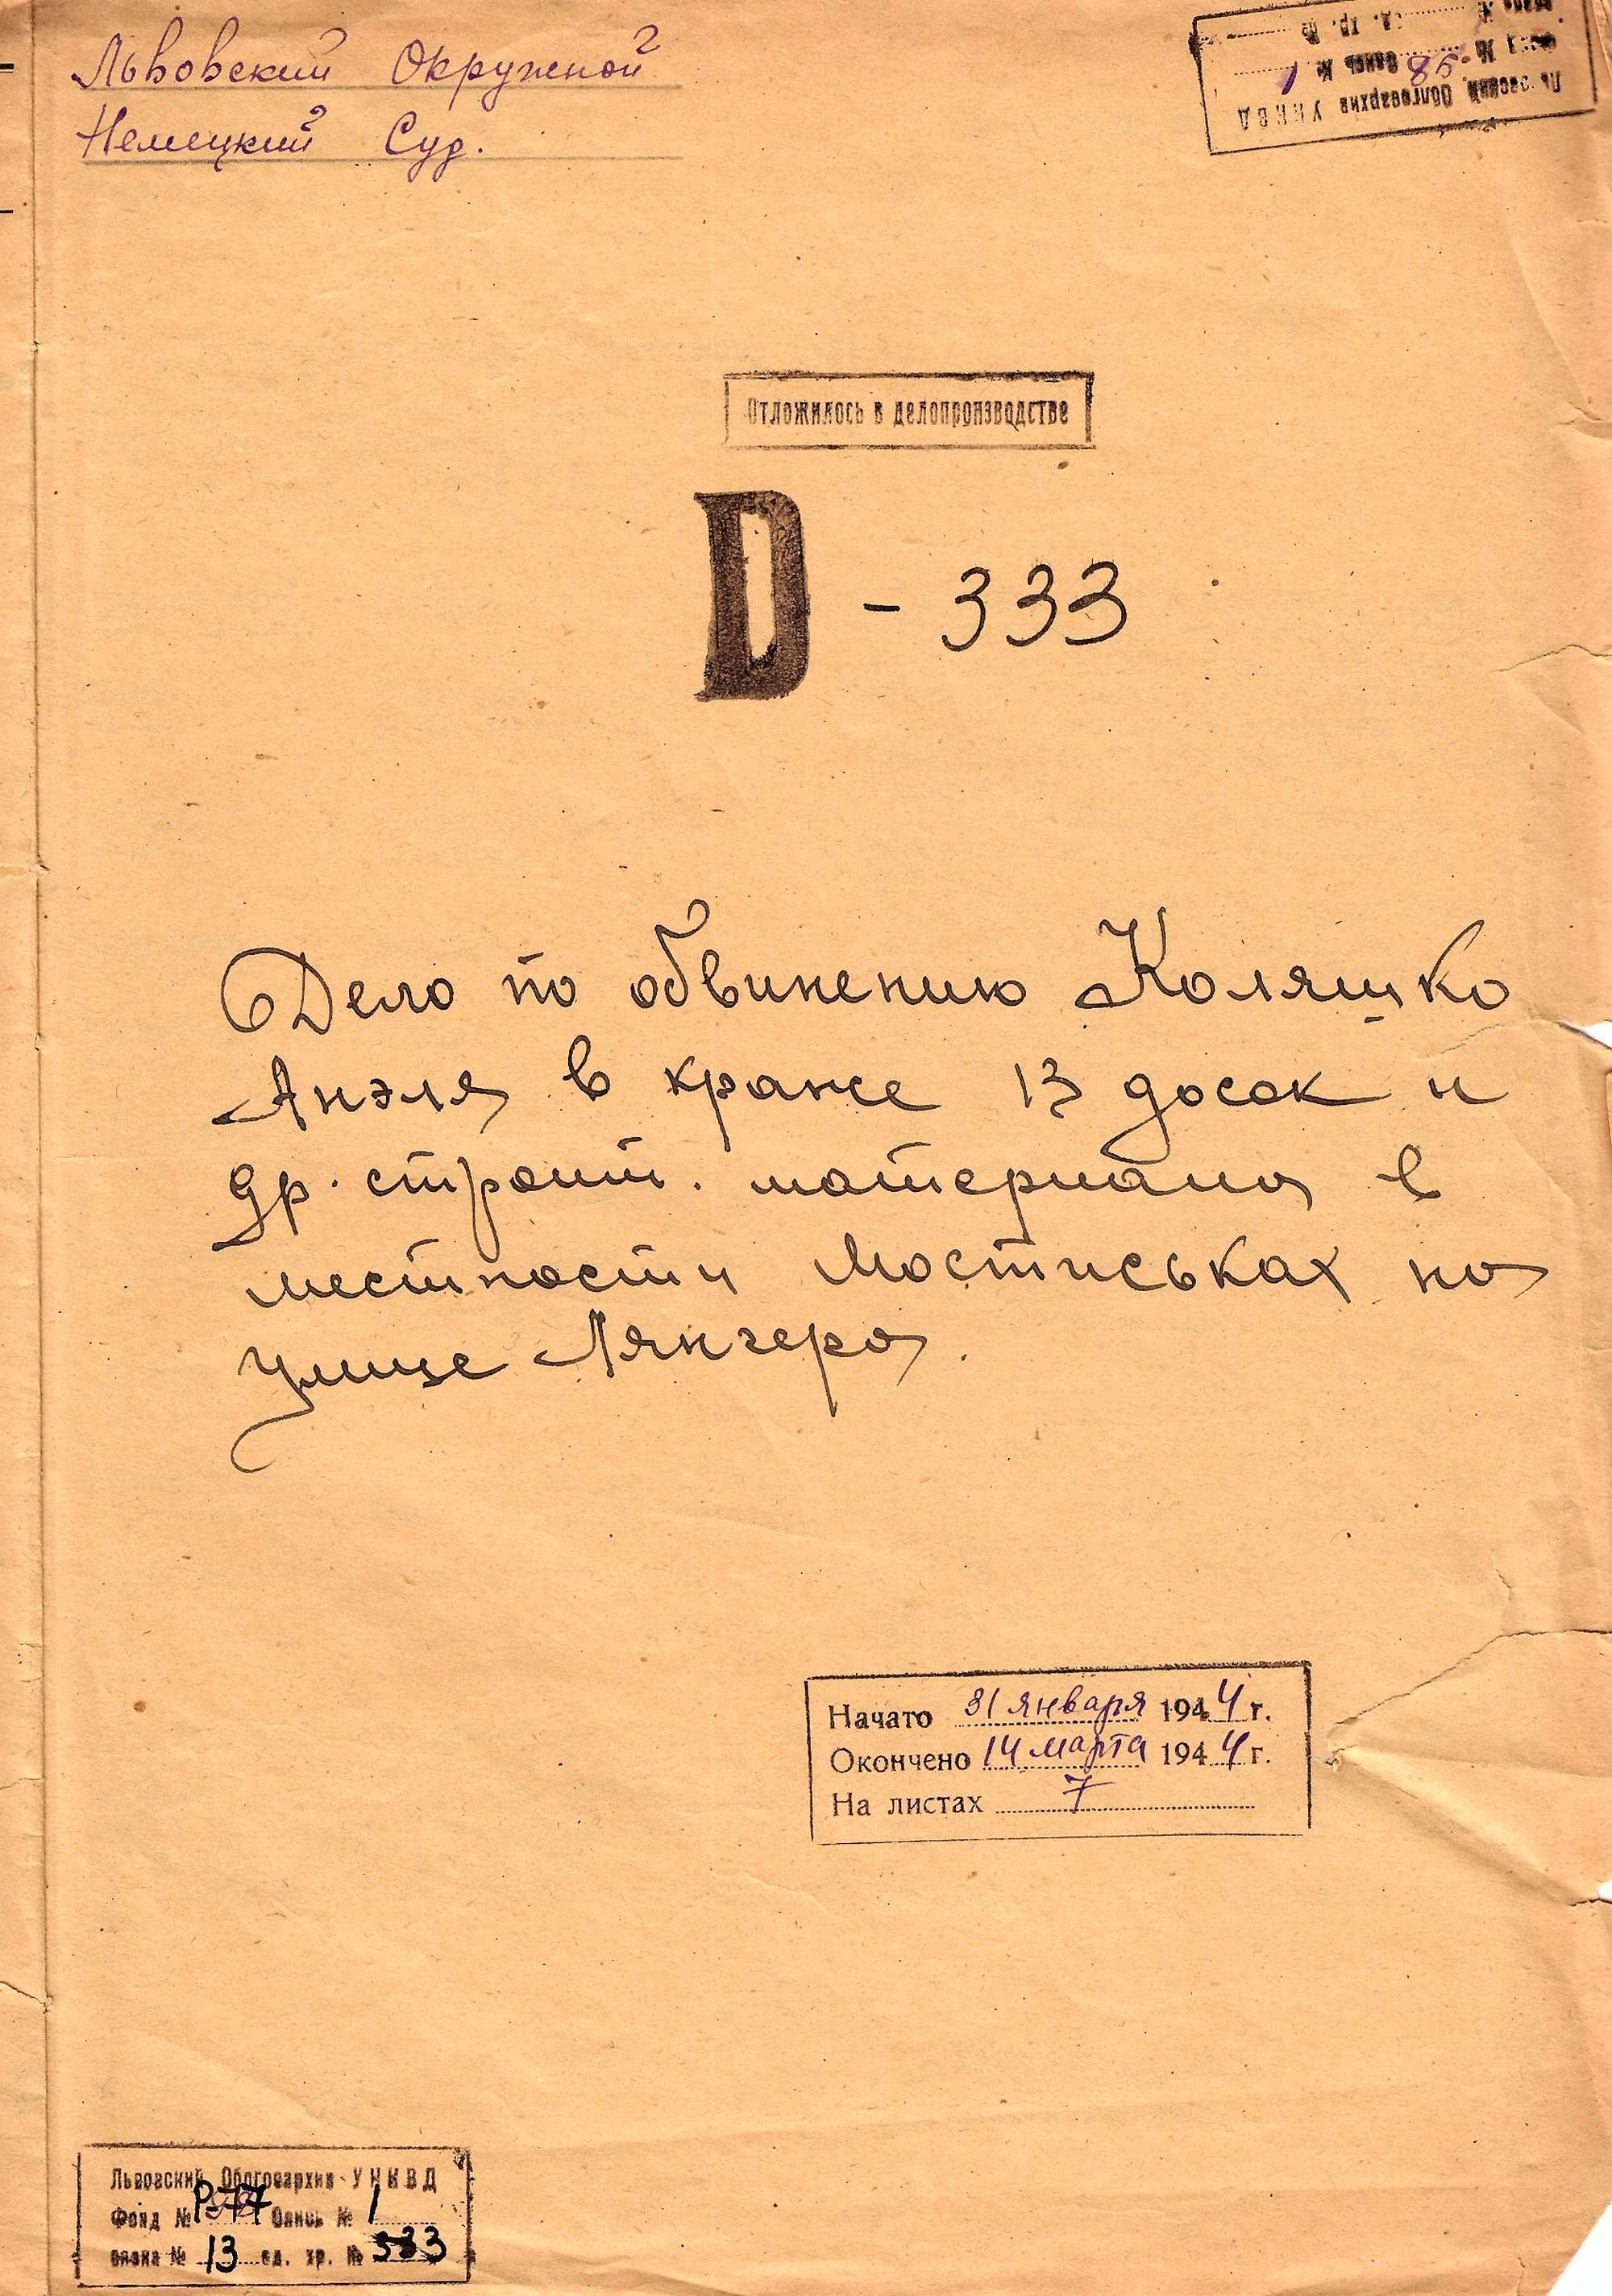 Львовский Окружной
Немецкий Суд.
Львовский Облгосархив УНКВД
Опись № 1
ед. хр. №
Отложилось в делопроизводстве
D - 333
Дело по обвинению Коляшко
Анэля в краже 13 досок и
др. строит. материала в
местности Мостиськах на
улице Лянгера.
Начато 31 января 1944 г.
Окончено 14 марта 1944 г.
На листах 7
Львовский Облгосархив УНКВД
Фонд № Р-77 Опись № 1
связка № 13 ед. хр. № 333